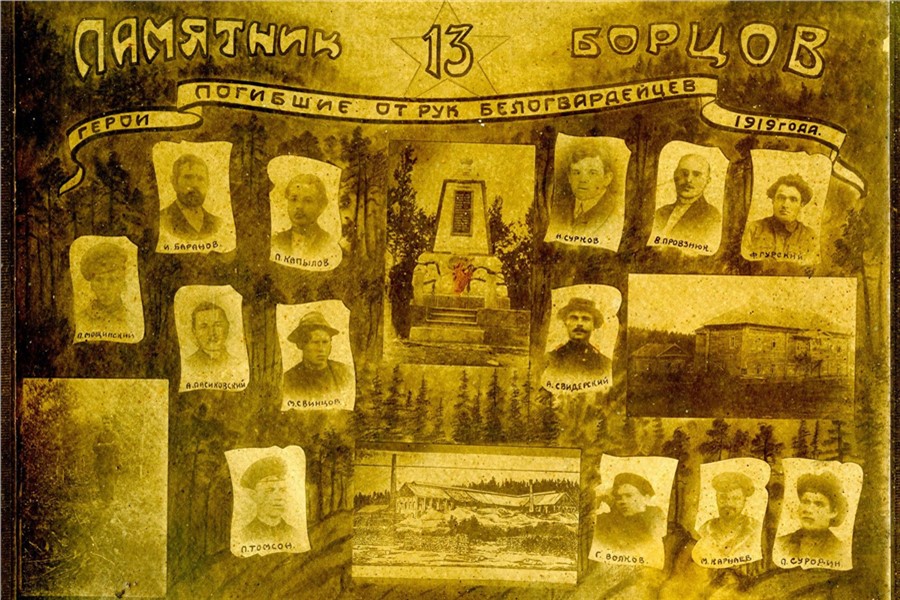 ПАМЯТНИК 13 БОРЦОВ
ГЕРОИ ПОГИБШИЕ ОТ РУК БЕЛОГВАРДЕЙЦЕВ 1919 ГОДА.
И. БАРАНОВ.
П. КАПЫЛОВ.
Н. СУРКОВ.
В. ПРОВЗНЮК.
Ф. ГУРСКИЙ
П. МОЩИНСКИЙ
А. ПАСИКОВСКИЙ
М. СВИНЦОВ.
А. СВИДЕРСКИЙ
П. ТОМСОН.
Г. ВОЛКОВ.
М. КАРНАЕВ
П. СУРОДИН.